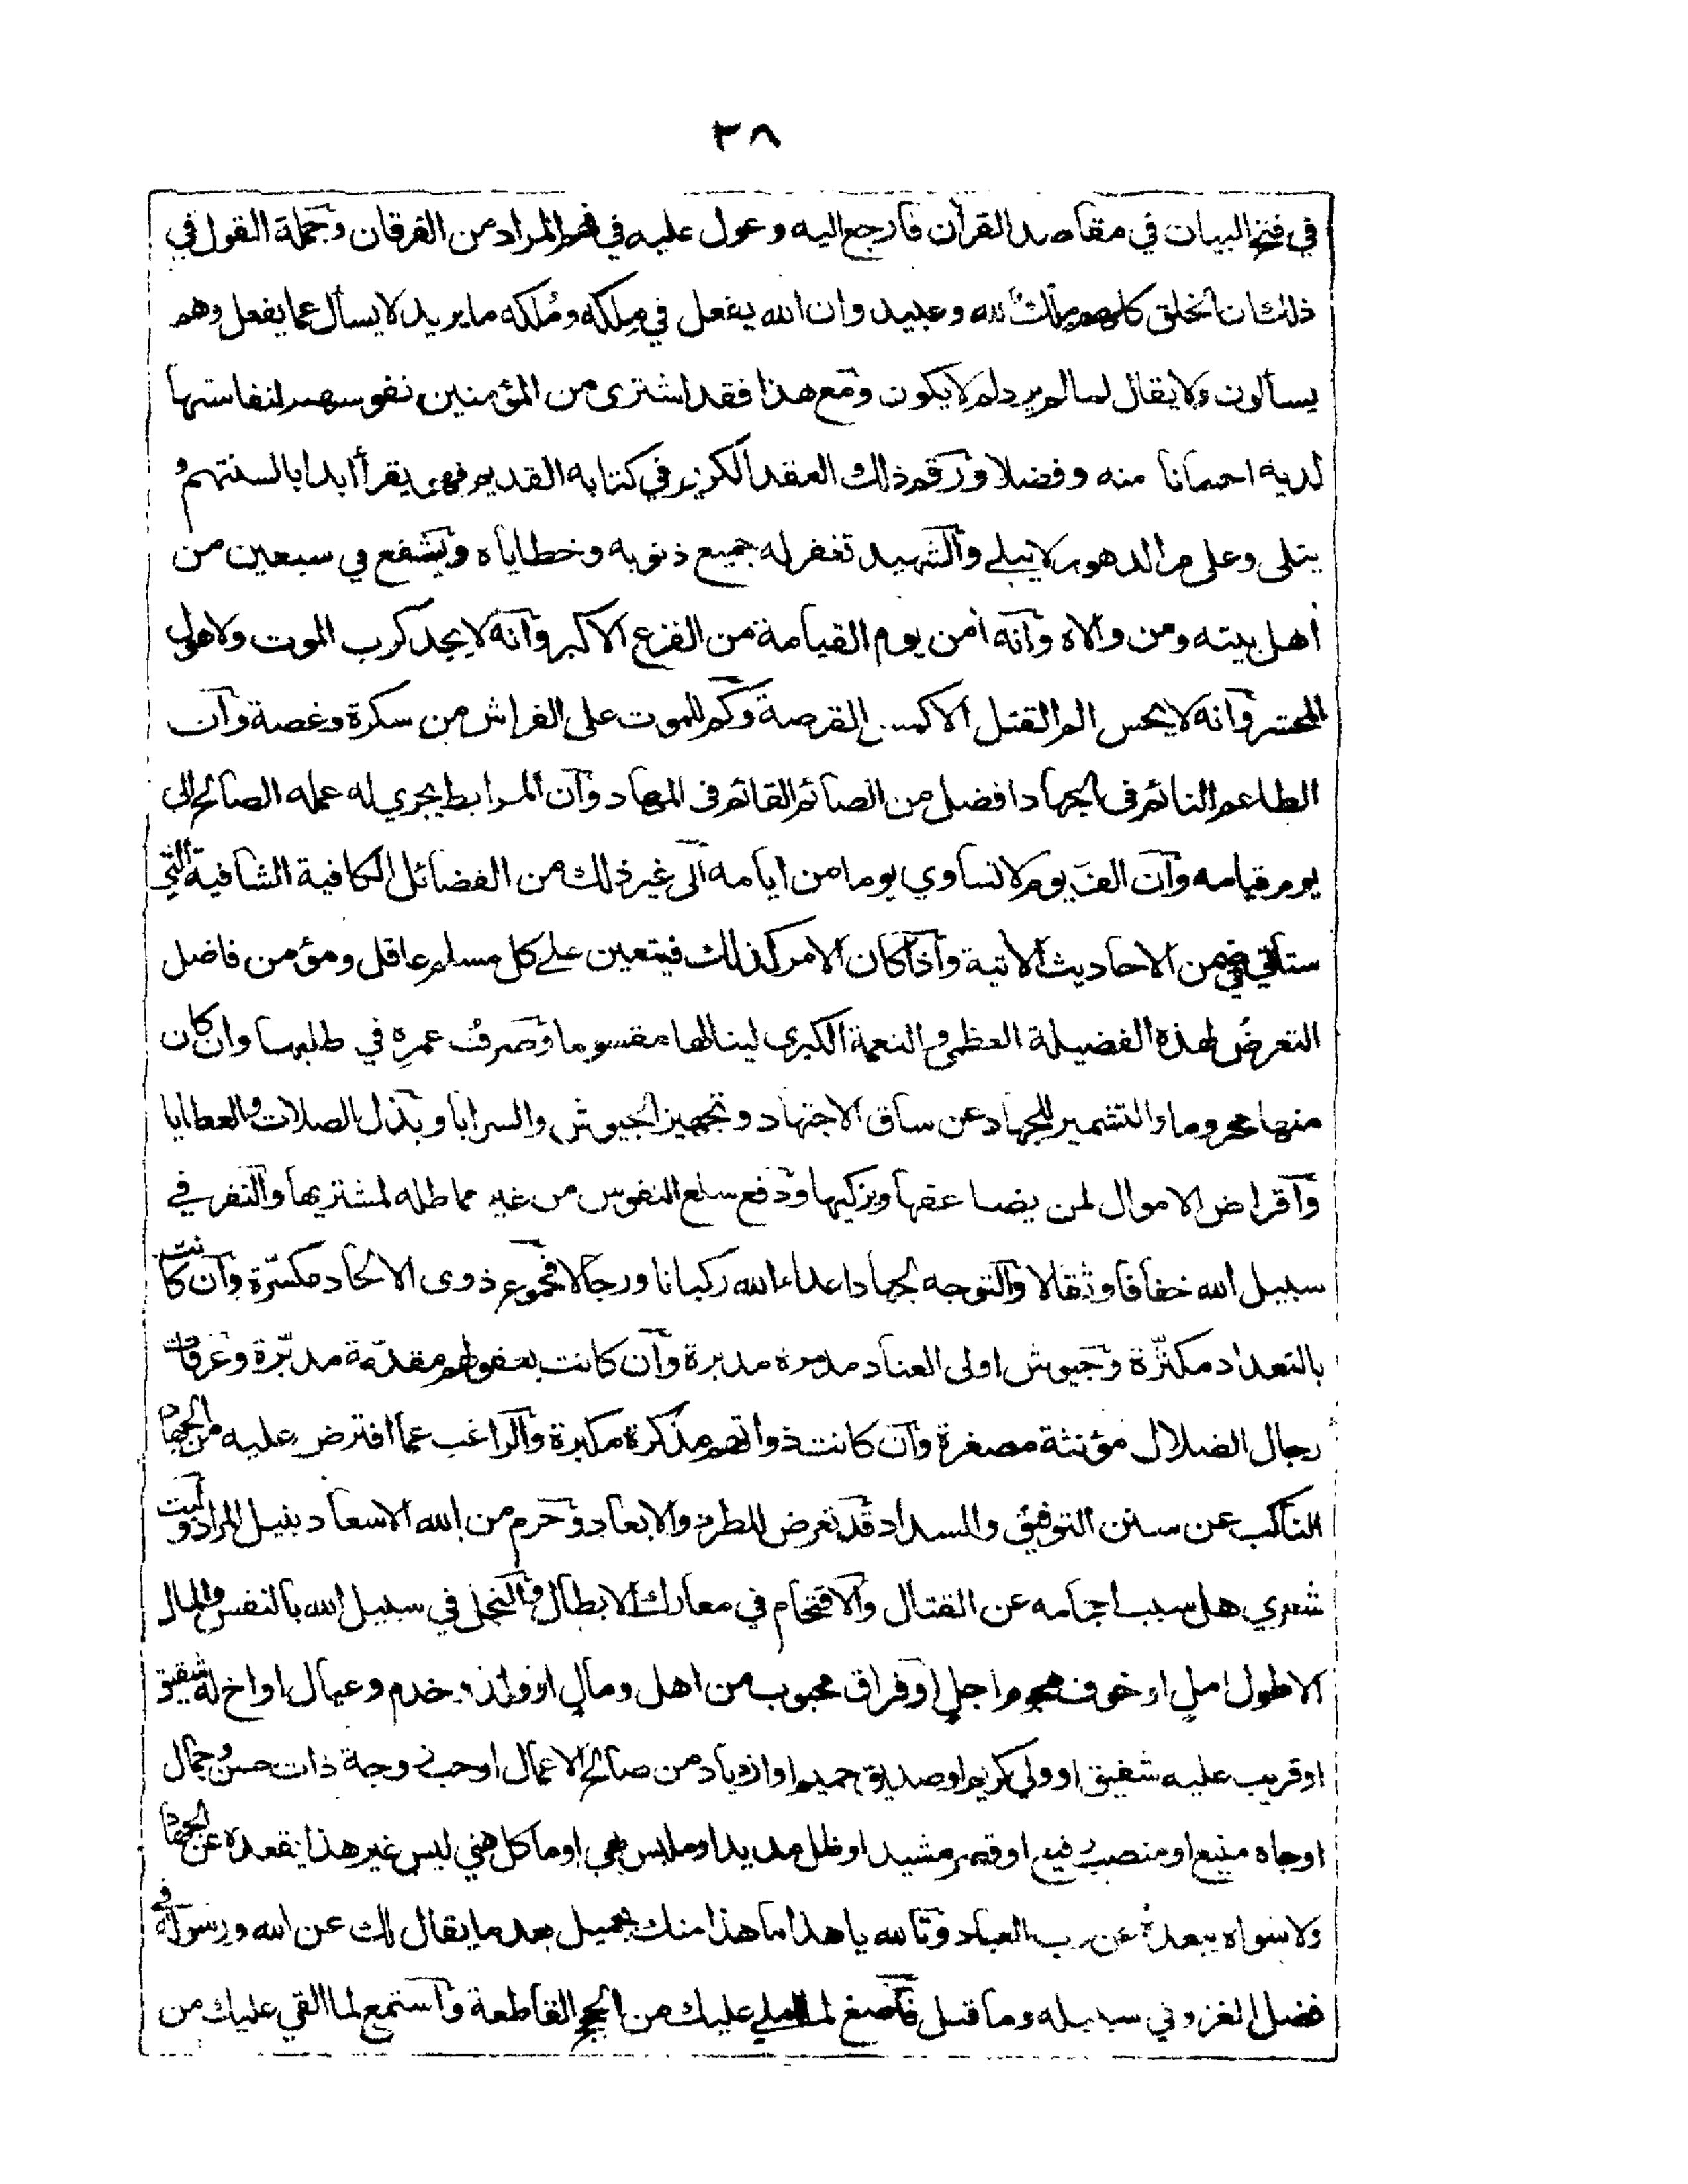 ٣٨
في فتح البيان في مقاصد القرآن فارجع اليه وعول عليه في فهم المراد من الفرقان وجملة القول في
ذلك ان الخلق كلهم ملك لله وعبيد وان الله يفعل في مِلكه ومُلكه ما يريد لا يسأل عما يفعل وهم
يسألون ولا يقال لما لم يرد لم لا يكون ومع هذا فقد اشترى من المؤمنين نفوسهم لنفاستها
لديه احسانا منه وفضلا ورقم ذلك العقد الكريم في كتابه القديم فهو يقرأ ابدا بالسنتهم و
يتلى وعلى مر الدهور لا يبلى والشهيد تغفر له جميع ذنوبه وخطاياه ويشفع في سبعين من
أهل بيته ومن والاه وانه أمن يوم القيامة من الفزع الاكبر وانه لا يجد كرب الموت ولا هول
المحشر وانه لا يحس الم القتل الا كمس القرصة وكم للموت على الفراش من سكرة وغصة وان
الطاعم النائم في الجهاد افضل من الصائم القائم في المهاد وان المرابط يجري له عمله الصالح الى
يوم قيامه وان الف يوم لا تساوي يوما من ايامه الى غير ذلك من الفضائل الكافية الشافية التي
ستأتي في ضمن الاحاديث الاتية واذا كان الامر كذلك فيتعين على كل مسلم عاقل ومؤمن فاضل
التعرض لهذه الفضيلة العظمى والنعمة الكبرى لينالها مقسوما وصرف عمره في طلبها وان كان
منها محروما والتشمير للجهاد عن ساق الاجتهاد وتجهيز الجيوش والسرايا وبذل الصلات والعطايا
واقراض الاموال لمن يضاعفها ويزكيها ودفع سلع النفوس من غير مماطله لمشتريها والنفر في
سبيل الله خفافا وثقالا والتوجه لجهاد اعداء الله ركبانا ورجالا فجموع ذوى الالحاد مكسّرة وان كانت
بالتعداد مكثّرة وجيوش اولى العناد مدبرة وان كانت بعقولهم مقدّمة مدبّرة وعرفات
رجال الضلال مؤنثة مصغرة وان كانت ذواتهم مذكرة مكبرة والراغب عما افترض عليه من الجهاد
الناكب عن سنن التوفيق والسداد قد تعرض للطرد والابعاد وحرم من الله الاسعاد بنيل المراد وليت
شعري هل سبب احجامه عن القتال والاقتحام في معارك الابطال والبخل في سبيل الله بالنفس والمال
الا طول امل او خوف هجوم اجل او فراق محبوب من اهل ومال او ولد وخدم وعيال او اخ له شقيق
او قريب عليه شفيق او ولي كريم او صديق حميم او ازدياد من صالح الاعمال او حب زوجة ذات حسن وجمال
او جاه منيع او منصب رفيع او قصر مشيد او ظل مديد او ملبس بهي او مأكل هني ليس غير هذا يقعده عن الجهاد
ولا سواه يبعده عن رب العباد وتالله يا هذا ما هذا منك بجميل بعد ما يقال لك عن الله ورسوله في
فضل الغزو في سبيله وما قيل فأصغ لما املي عليك من الحجج القاطعة واستمع لما القي عليك من